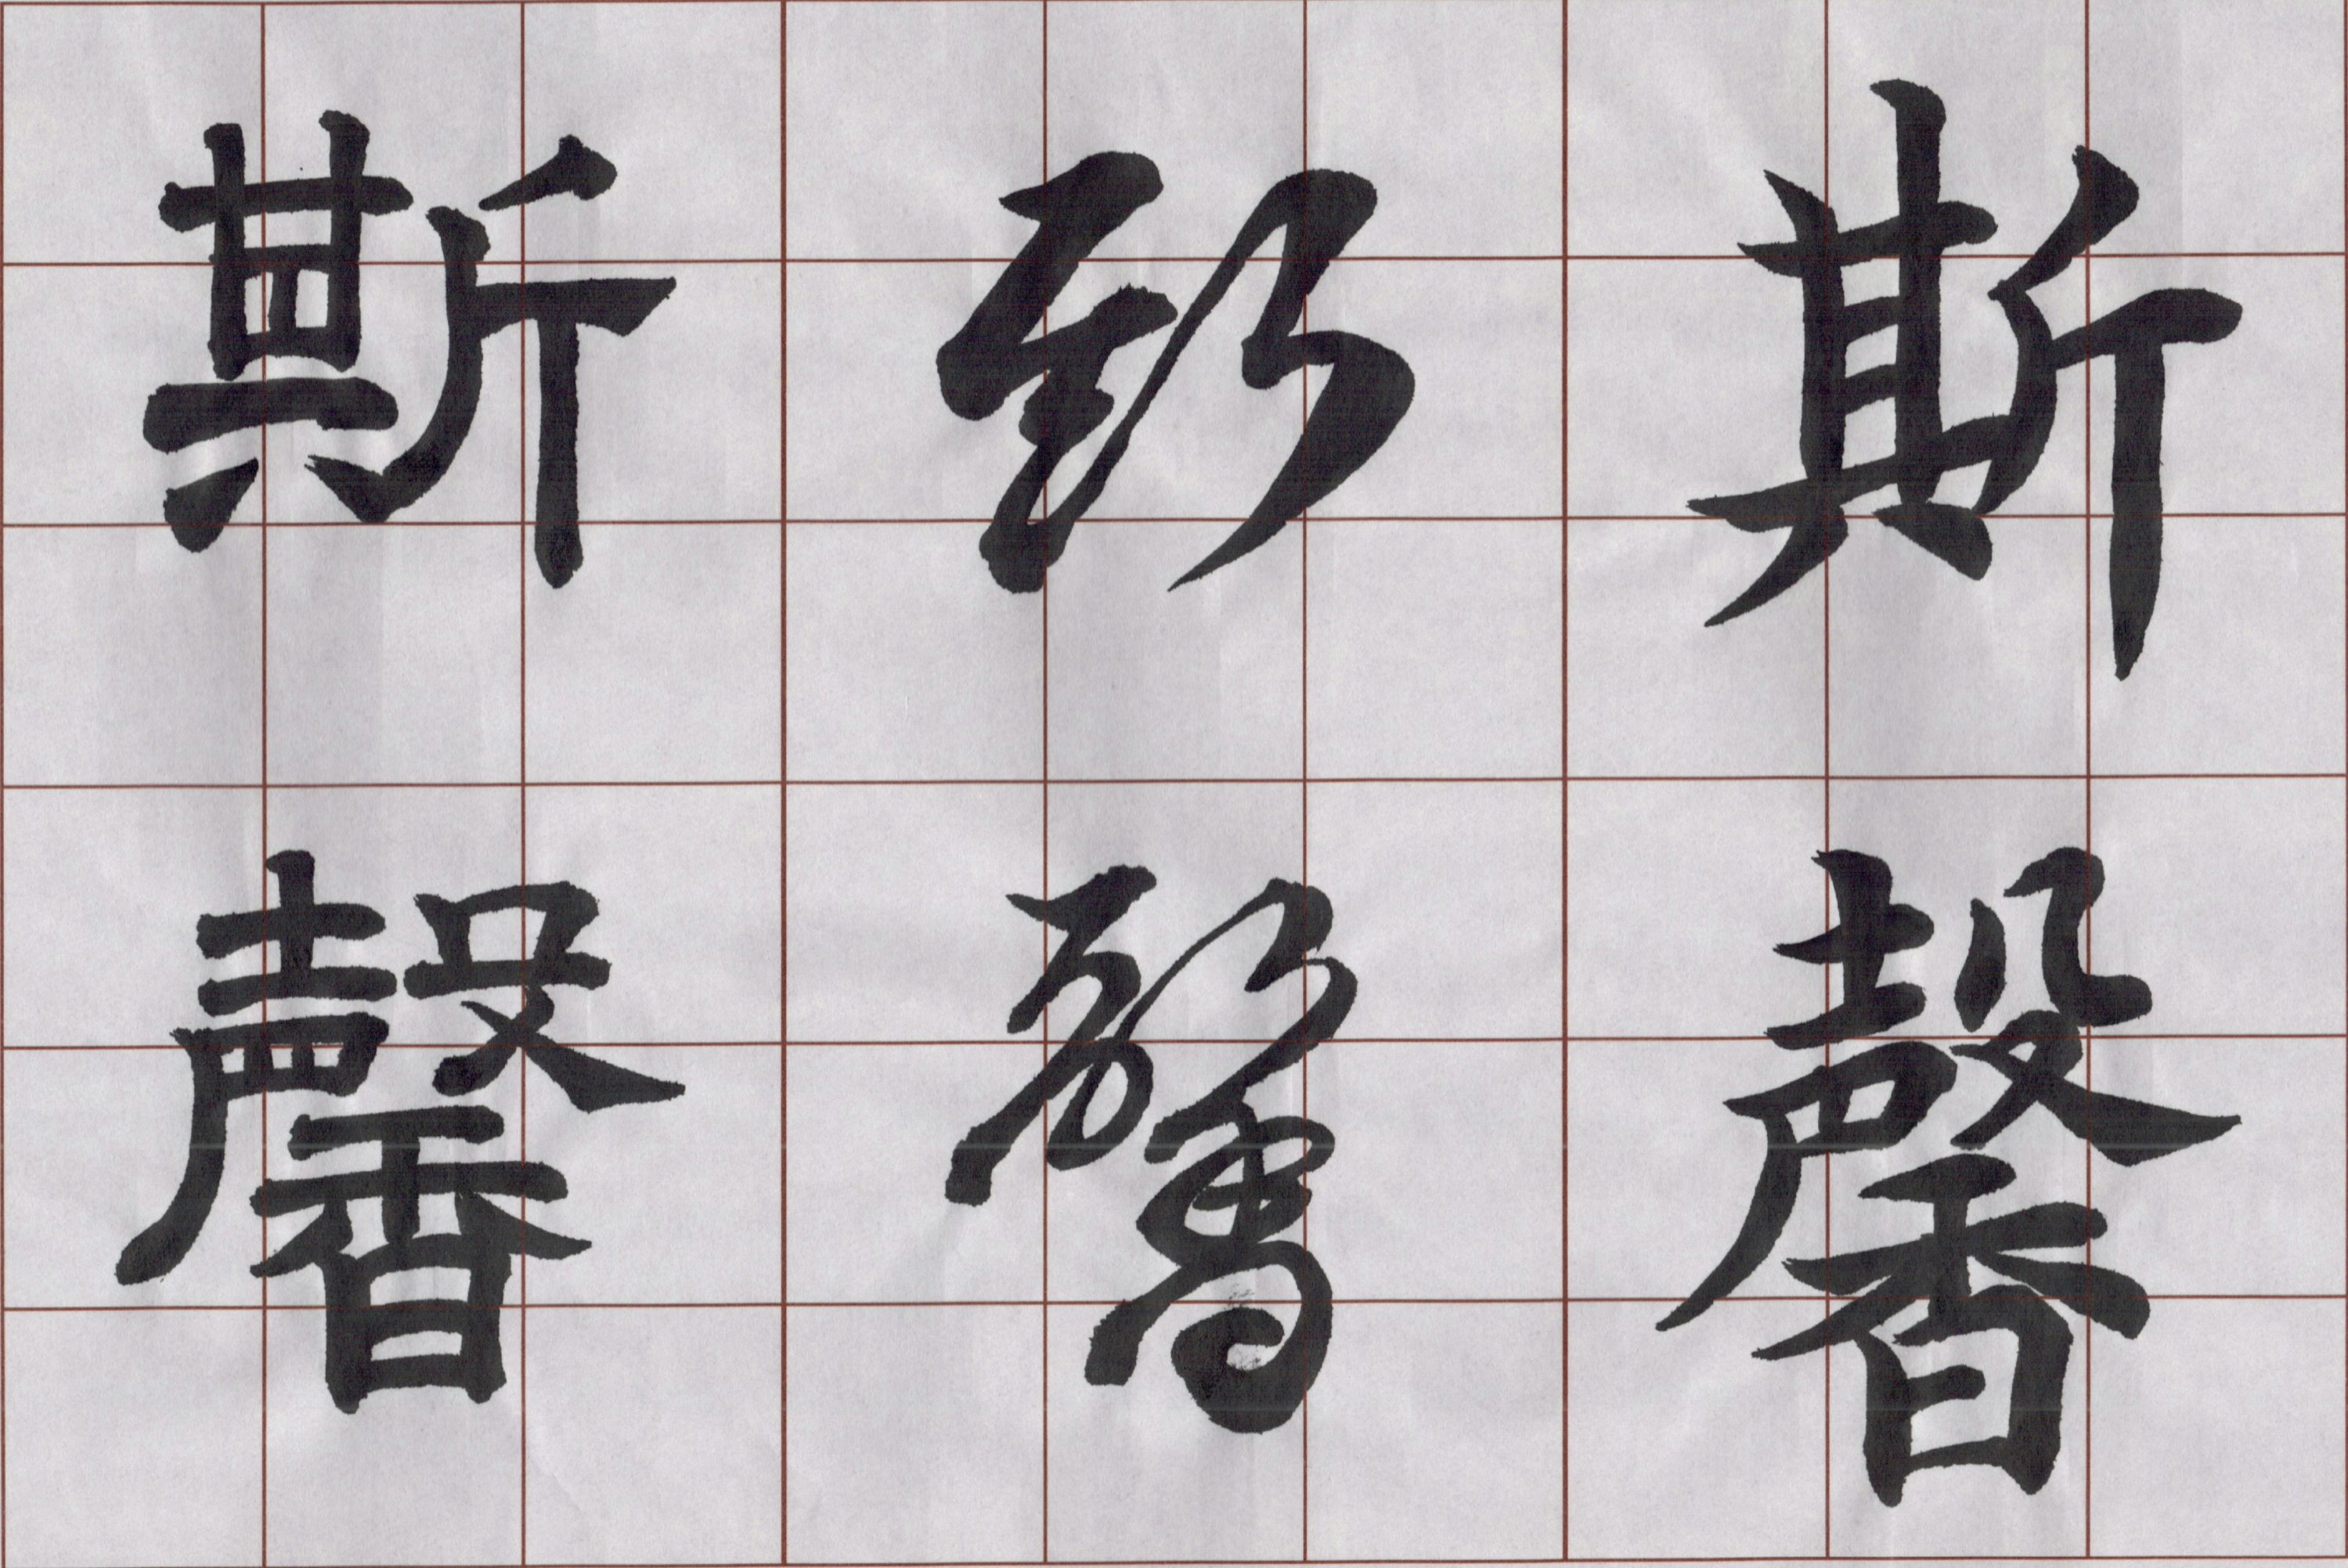 斯馨
斯馨
斯馨